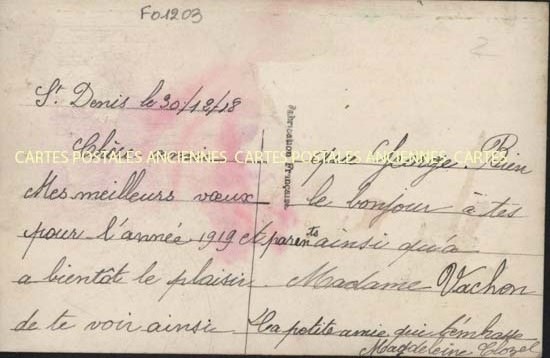 Fo1203
2
St Denis le 30/12/18
Chère
Mes meilleurs voeux
pour l'année 1919 et
a bientôt le plaisir
de te voir ainsi
que George. Bien
le bonjour à tes
parents ainsi qu'à
Madame Vachon
Ta petite amie qui t'embrasse
Magdeleine
Fabrication Française
CARTES POSTALES ANCIENNES CARTES POSTALES ANCIENNES CARTES POSTALES ANCIENNES